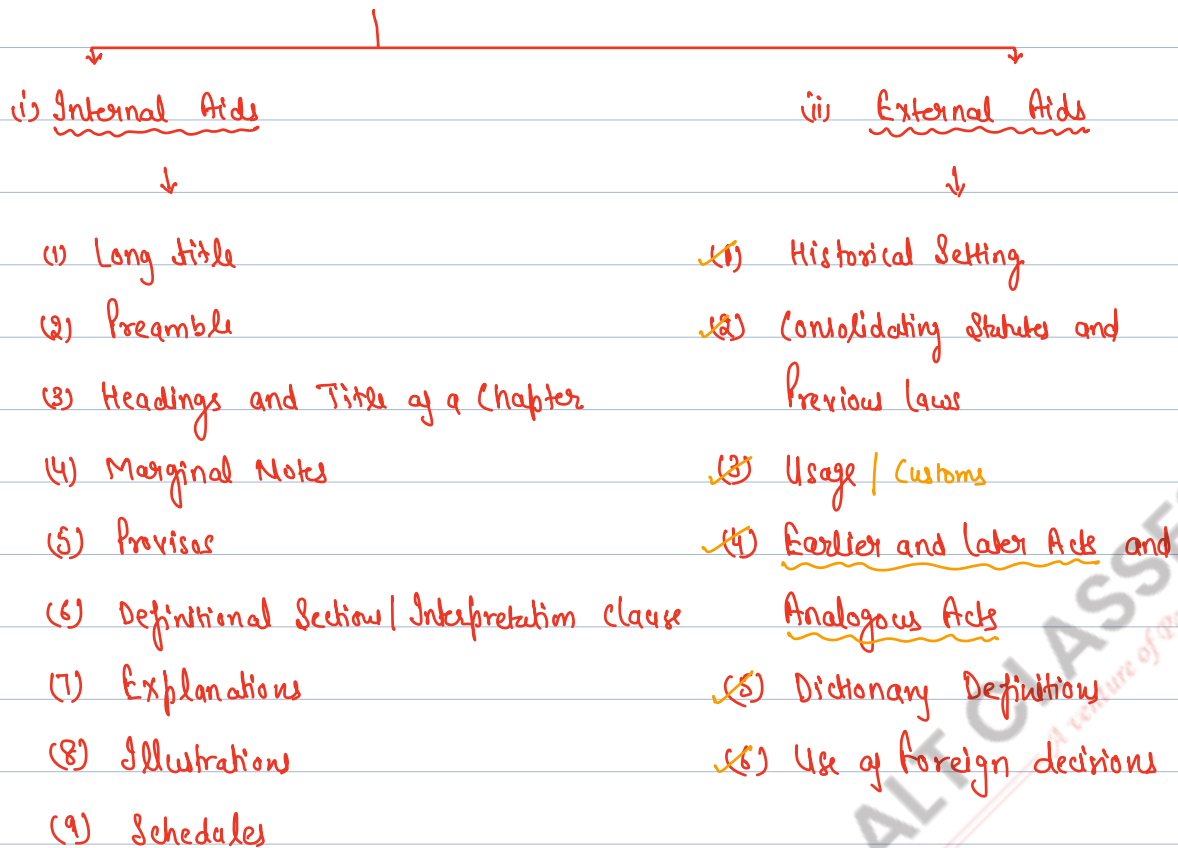 (i) Internal Aids
(1) Long title
(2) Preamble
(3) Headings and Title of a Chapter
(4) Marginal Notes
(5) Provisos
(6) Definitional Sections / Interpretation Clause
(7) Explanations
(8) Illustrations
(9) Schedules
(ii) External Aids
(1) Historical Setting
(2) Consolidating Statutes and
Previous laws
(3) Usage / Customs
(4) Earlier and later Acts and
Analogous Acts
(5) Dictionary Definitions
(6) Use of foreign decisions
ALT CLASSE
A venture of